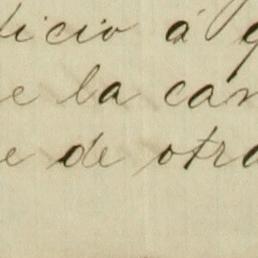 ticio á
e la can
e de otra